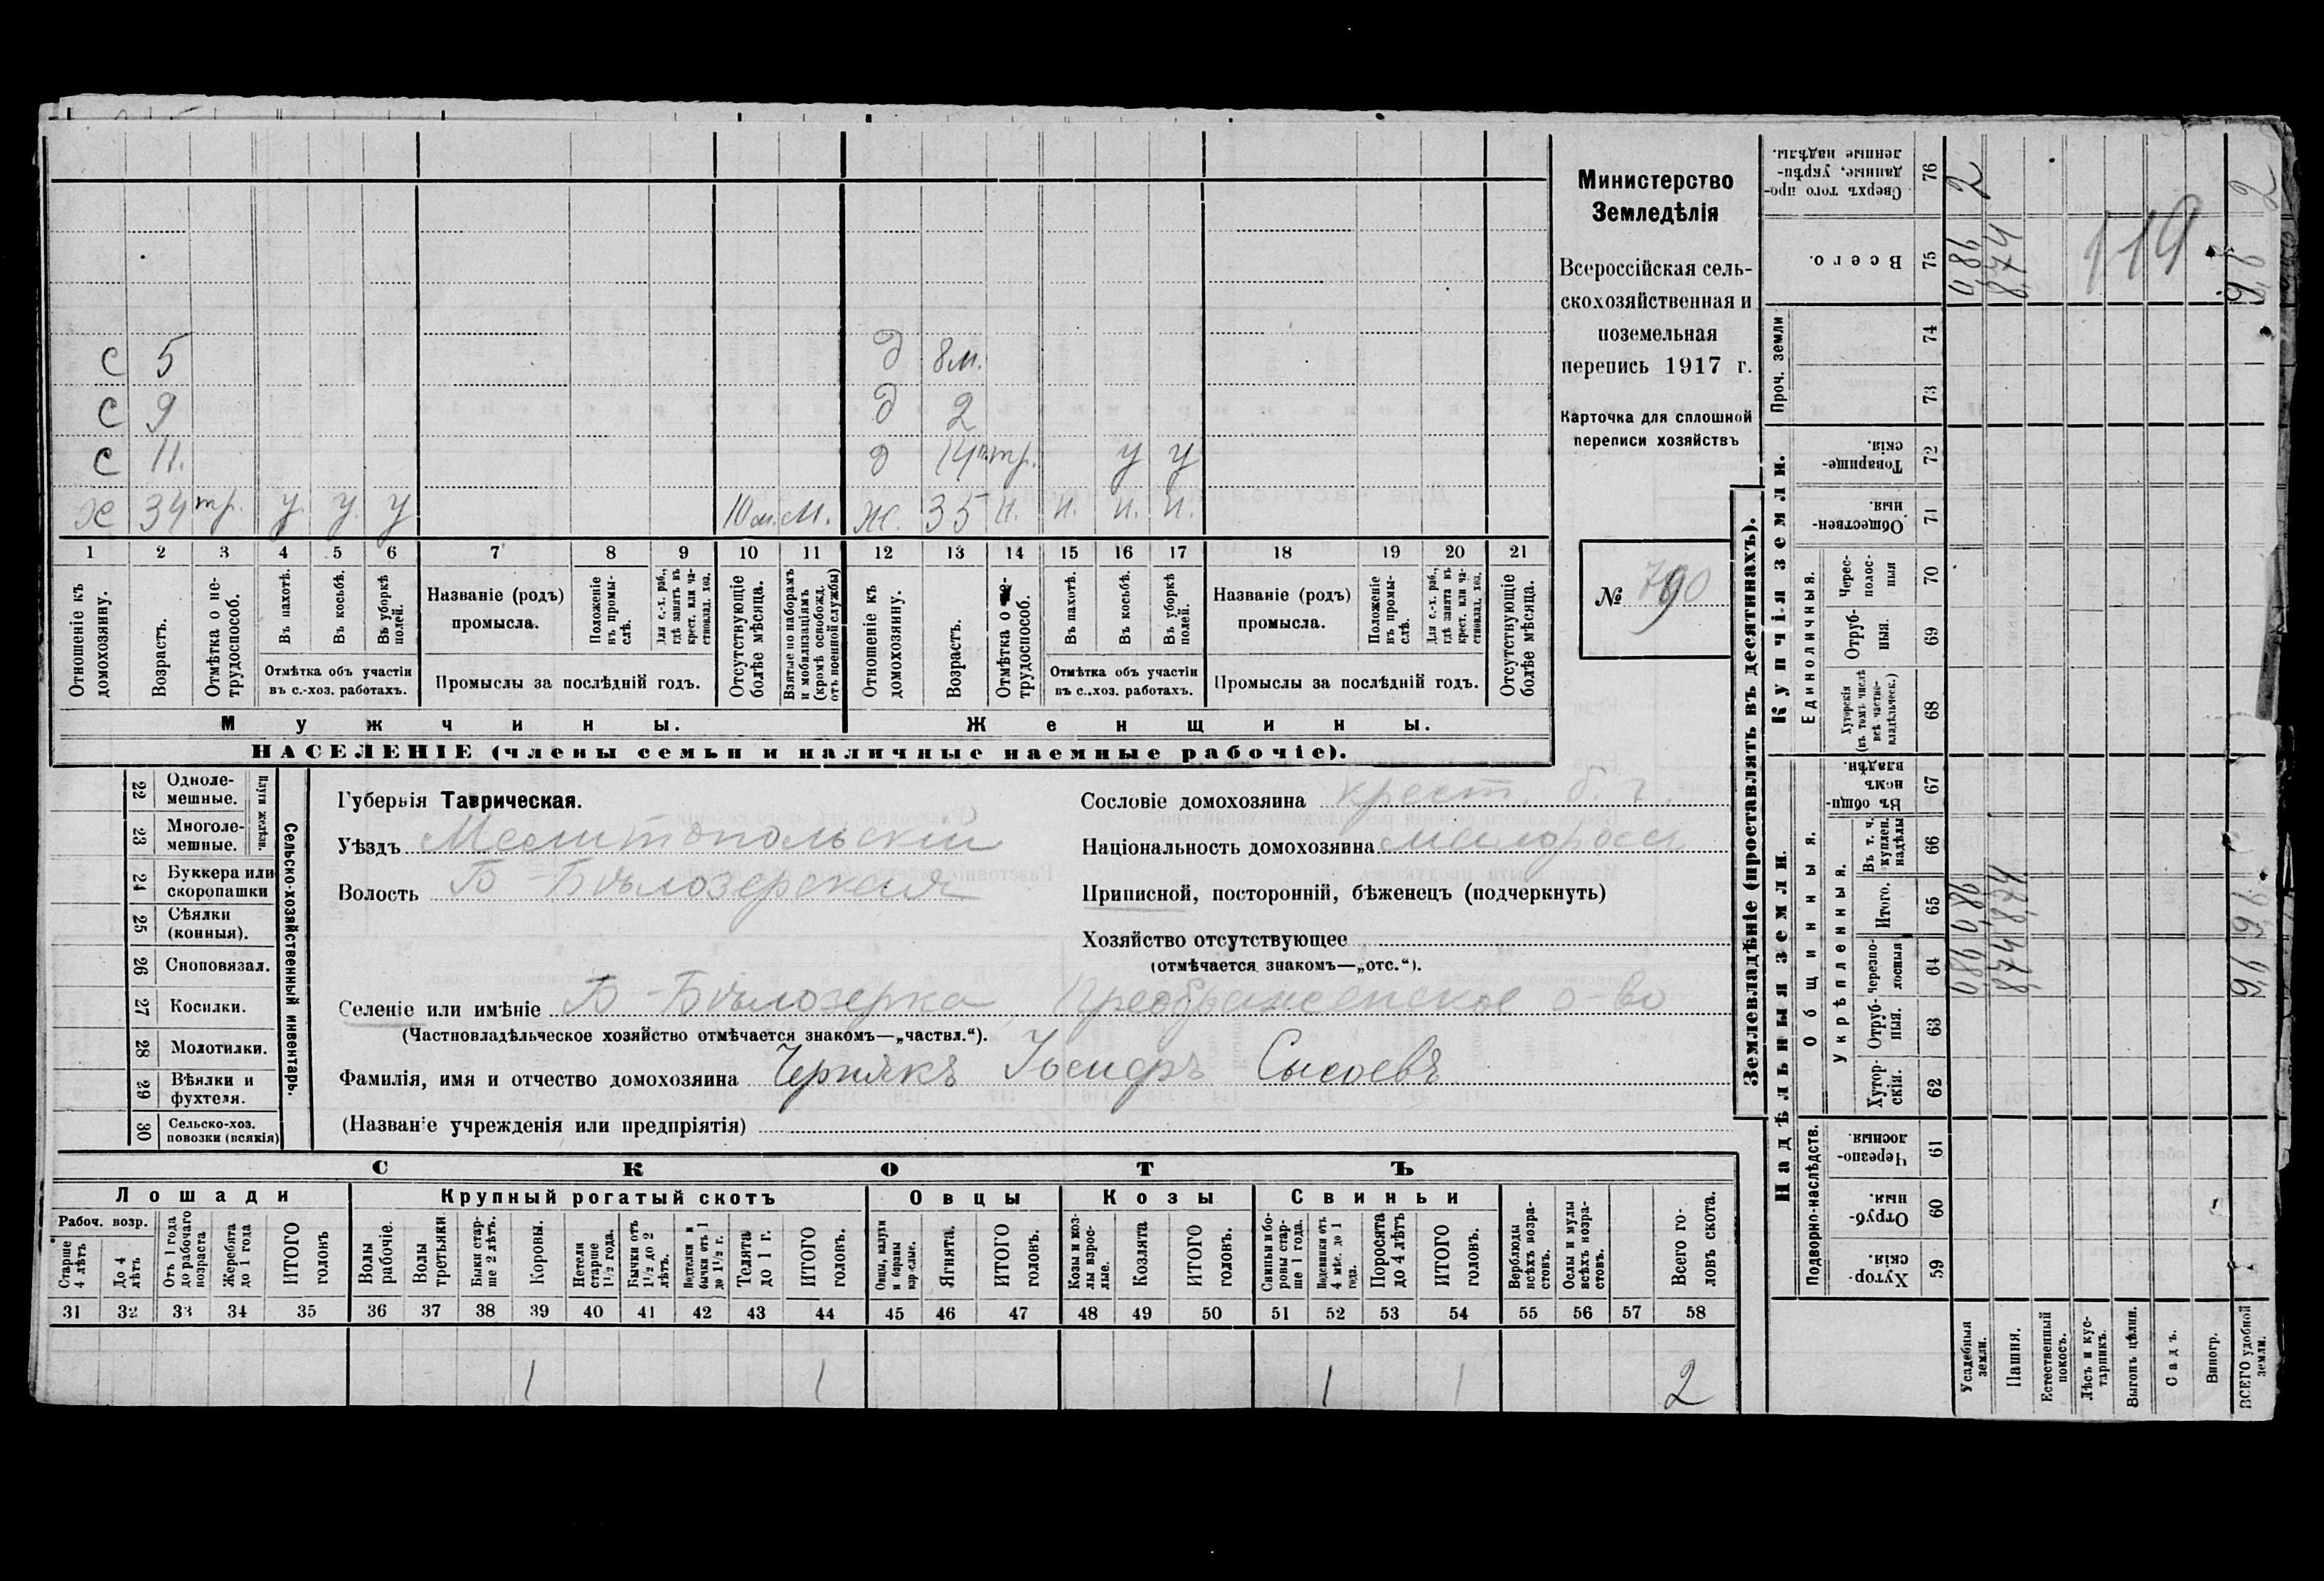 С 5 д 8 м.
С 9 д 2
С 11. д 14 п.тр. у у
Х 34 тр. у. у. у 10 м. М. Ж. 35 н. н. н. н.
1 2 3 4 5 6 7 8 9 10 11 12 13 14 15 16 17 18 19 20 21
Отношеніе къ домохозяину.
Возрастъ.
Отмѣтка о не-трудоспособ.
Въ пахотѣ.
Въ косьбѣ.
Въ уборкѣ полей.
Отмѣтка объ участіи
въ с.-хоз. работахъ.
Названіе (родъ)
промысла.
Положеніе въ промы-слѣ.
Для с.-х. раб., гдѣ занятъ въ крест. или ча-стновлад. хоз.
Промыслы за послѣдній годъ.
Отсутствующіе болѣе мѣсяца.
Взятые по наборамъ и мобилизаціямъ (кромѣ освобожд. отъ военной службы)
Отношеніе къ домохозяину.
Возрастъ.
Отмѣтка о не-трудоспособ.
Въ пахотѣ.
Въ косьбѣ.
Въ уборкѣ полей.
Отмѣтка объ участіи
въ с.-хоз. работахъ.
Названіе (родъ)
промысла.
Положеніе въ промы-слѣ.
Для с.-х. раб., гдѣ занята въ крест. или ча-стновлад. хоз.
Промыслы за послѣдній годъ.
Отсутствующіе болѣе мѣсяца.
Мужчины. Женщины.
НАСЕЛЕНІЕ (члены семьи и наличные наемные рабочіе).
Министерство
Земледѣлія
Всероссійская сель-
скохозяйственная и
поземельная
перепись 1917 г.
Карточка для сплошной
переписи хозяйствъ
№ 790
22 Одноле-мешные.
23 Многоле-мешные.
Плуги желѣзн.
24 Буккера или скоропашки
25 Сѣялки (конныя).
26 Сноповязал.
27 Косилки.
28 Молотилки.
29 Вѣялки и фухтеля.
30 Сельско-хоз. повозки (всякія)
Сельско-хозяйственный инвентарь.
Губернія Таврическая.
Уѣздъ Мелитопольскій
Волость Б-Бѣлозерская
Сословіе домохозяина крест. б. г.
Національность домохозяина малоросс
Приписной, посторонній, бѣженецъ (подчеркнуть)
Хозяйство отсутствующее
(отмѣчается знакомъ—„отс.“).
Селеніе или имѣніе Б-Бѣлозерка, Преображенское о-во
(Частновладѣльческое хозяйство отмѣчается знакомъ—„частвл.“).
Фамилія, имя и отчество домохозяина Чернякъ Іосифъ Сысоевъ
(Названіе учрежденія или предпріятія)
СКОТЪ
Лошади Крупный рогатый скотъ Овцы Козы Свиньи
Рабоч. возр.
Старше 4 лѣтъ
До 4 лѣтъ
Отъ 1 года до рабочаго возраста
Жеребята до 1 года
ИТОГО головъ
Волы рабочіе.
Волы третьяки.
Быки стар-ше 2 лѣтъ.
Коровы.
Нетели старше 1½ года.
Бычки отъ 1½ до 2 лѣтъ.
Подтелки и бычки отъ 1 до 1½ г.
Телята до 1 г.
ИТОГО головъ.
Овцы, валухи и бараны взрослые.
Ягнята.
ИТОГО головъ.
Козы и коз-лы взрос-лые.
Козлята
ИТОГО головъ.
Свиньи и бо-ровы стар-ше 1 года.
Подсвинки отъ 4 мѣс. до 1 года.
Поросята до 4 лѣтъ
ИТОГО головъ.
Верблюды всѣхъ возра-стовъ.
Ослы и мулы всѣхъ возра-стовъ.
Всего го-ловъ скота.
31 32 33 34 35 36 37 38 39 40 41 42 43 44 45 46 47 48 49 50 51 52 53 54 55 56 57 58
1 1 1 1 2
Землевладѣніе (проставлять въ десятинахъ).
Надѣльныя земли. Купчія земли.
Проч. земли
Подворно-наслѣдств.
Общинныя.
Укрѣпленныя.
Единоличныя.
Сверхъ того про-данные, укрѣп-ленные надѣлы. 76
Всего. 75
74
73
Товарище-скія. 72
Обществен-ныя. 71
Черес-полос-ныя 70
Отруб-ныя. 69
Хуторскія (въ томъ числѣ всѣ частно-владѣльческ.) 68
Въ общи-номъ владѣн. 67
Въ т. ч. куплен. надѣлы 66
Итого. 65
Черезпо-лосныя 64
Отруб-ныя. 63
Хутор-скія. 62
Черезпо-лосныя 61
Отруб-ныя. 60
Хутор-скія 59
Усадебныя земли. 0,86 0,86 0,86 2
Пашня. 8,74 8,74 8,74
Естественный покосъ.
Лѣсъ и кус-тарникъ.
Выгонъ цѣлин.
Садъ.
Виногр.
ВСЕГО удобной земли. 9,6 9,6 9,6 2
119